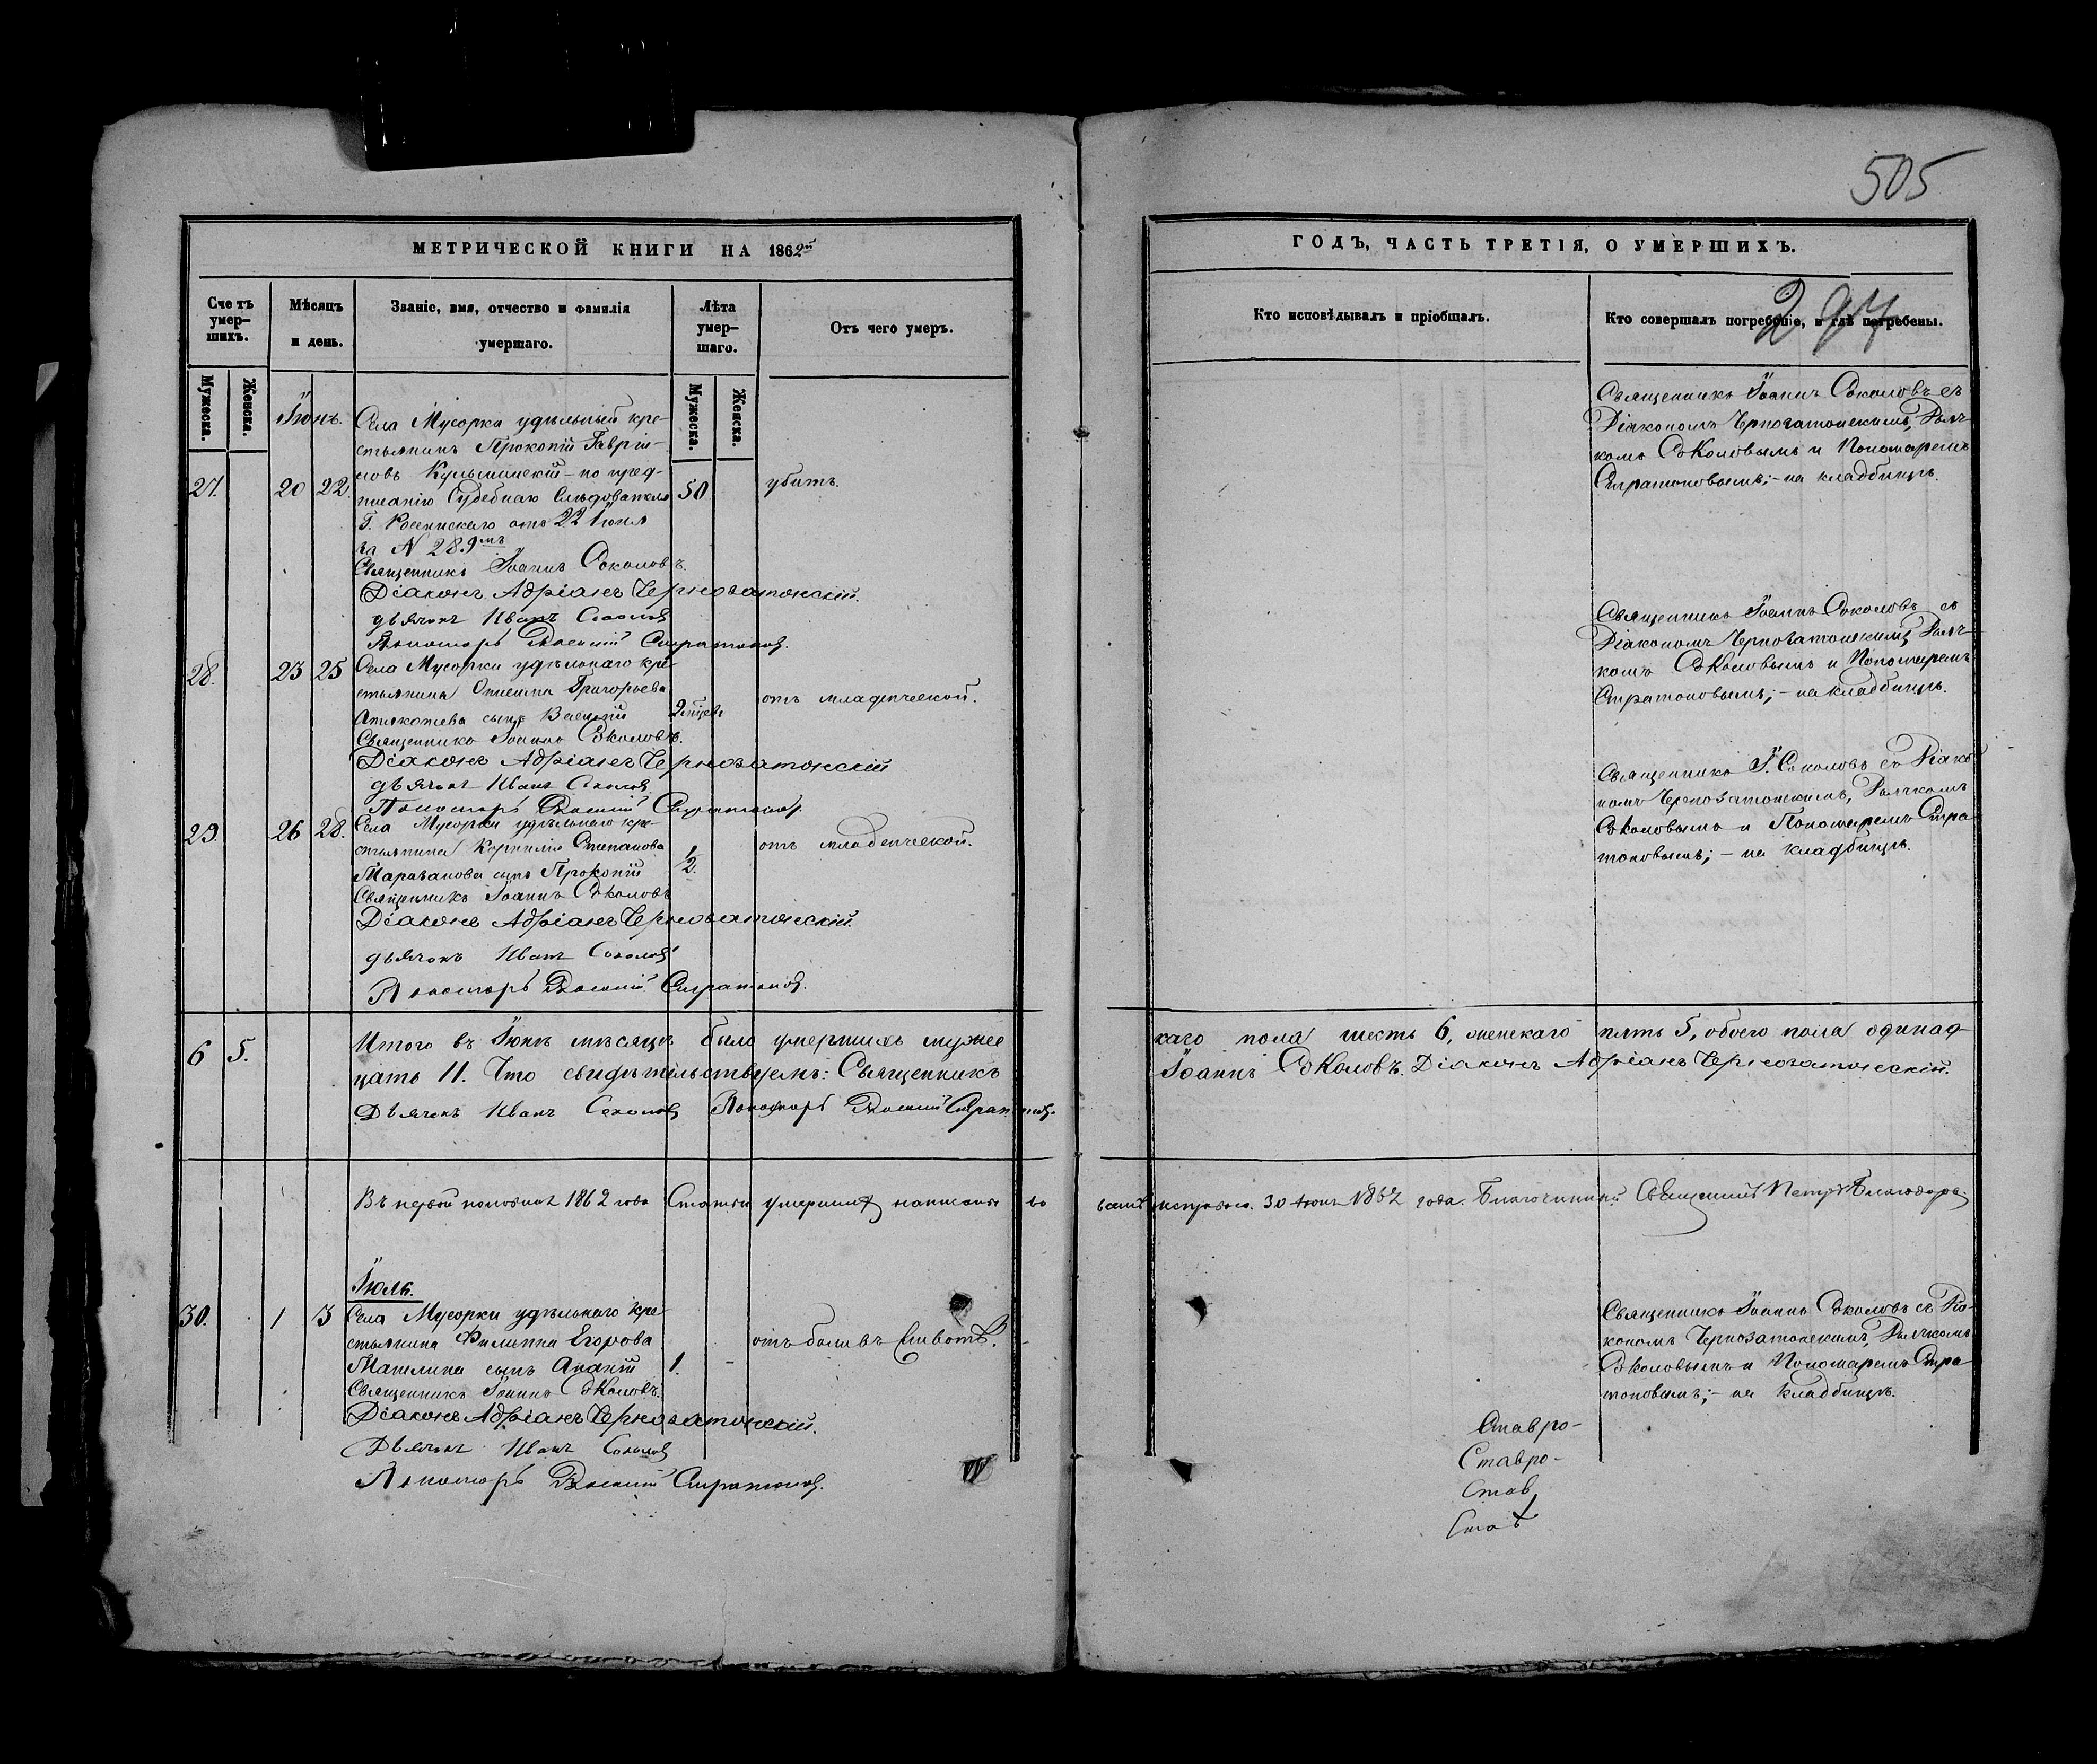 505
МЕТРИЧЕСКОЙ КНИГИ НА 1862й
ГОДЪ, ЧАСТЬ ТРЕТІЯ, О УМЕРШИХЪ.
294
Счетъ умер-
шихъ.
Мѣсяцъ
и день.
Званіе, имя, отчество и фамилія
умершаго.
Лѣта
умер-
шаго.
Отъ чего умеръ.
Кто исповѣдывалъ и пріобщалъ.
Кто совершалъ погребеніе, и гдѣ погребены.
Мужеска.
Женска.
Мужеска.
Женска.
Іюнь.
27.
20 22
Села Мусорка удѣльный кре-
стьянинъ Прокопій Гаврі-
ловъ Кулыминскій - по пред-
писанію Судебнаго Слѣдователя
Г. отъ 22 Іюня
за N 289мъ
50
убитъ.
Священникъ Іоаннъ Соколовъ.
Діаконъ Адріанъ Чернозатонскій.
дьячокъ Иванъ Соколовъ
Пономарь Василій Стратоновъ.
Священникъ Іоаннъ Соколовъ съ
Діакономъ Чернозатонскимъ, Дьяч-
комъ Соколовымъ и Пономаремъ
Стратоновымъ; - на кладбищѣ.
28.
23 25
Села Мусорки удѣльнаго кре-
стьянина Онисима Григорьева
сынъ Василій
2 мѣсяц.
отъ младенческой.
Священникъ Іоаннъ Соколовъ.
Діаконъ Адріанъ Чернозатонскій
дьячокъ Иванъ Соколовъ.
Пономарь Василій Стратоновъ
Священникъ Іоаннъ Соколовъ съ
Діакономъ Чернозатонскимъ, Дьяч-
комъ Соколовымъ и Пономаремъ
Стратоновымъ; - на кладбищѣ.
29.
26 28.
Села Мусорки удѣльнаго кре-
стьянина Корнилія Степанова
сынъ Прокопій
1/2.
отъ младенческой.
Священникъ Іоаннъ Соколовъ
Діаконъ Адріанъ Чернозатонскій.
дьячокъ Иванъ Соколовъ
Пономарь Василій Стратоновъ.
Священникъ І. Соколовъ съ Діако-
номъ Чернозатонскимъ, Дьячкомъ
Соколовымъ и Пономаремъ Стра-
тоновымъ; - на кладбищѣ.
6 5.
Итого въ Іюнѣ мѣсяцѣ было умершихъ мужес
каго пола шесть 6, женскаго пять 5, обоего пола одинад-
цать 11. Что свидѣтельствуемъ: Священникъ
Іоаннъ Соколовъ. Діаконъ Адріанъ Чернозатонскій.
Дьячокъ Иванъ Соколовъ Пономарь Василій Стратоновъ.
Въ первой половинѣ 1862 года Статьи умершихъ написаны во
всемъ исправно. 30 Іюня 1862 года. Благочинный Священникъ Петръ
Іюль.
30.
1 3
Села Мусорки удѣльнаго кре-
стьянина Филиппа Егорова
Машлина сынъ Ананій
1.
отъ боли въ животѣ.
Священникъ Іоаннъ Соколовъ.
Діаконъ Адріанъ Чернозатонскій.
Дьячокъ Иванъ Соколовъ
Пономарь Василій Стратоновъ.
Священникъ Іоаннъ Соколовъ съ Діа-
кономъ Чернозатонскимъ, Дьячкомъ
Соколовымъ и Пономаремъ Стра-
тоновымъ; - на кладбищѣ.
Ставро-
Ставро-
Став
Став